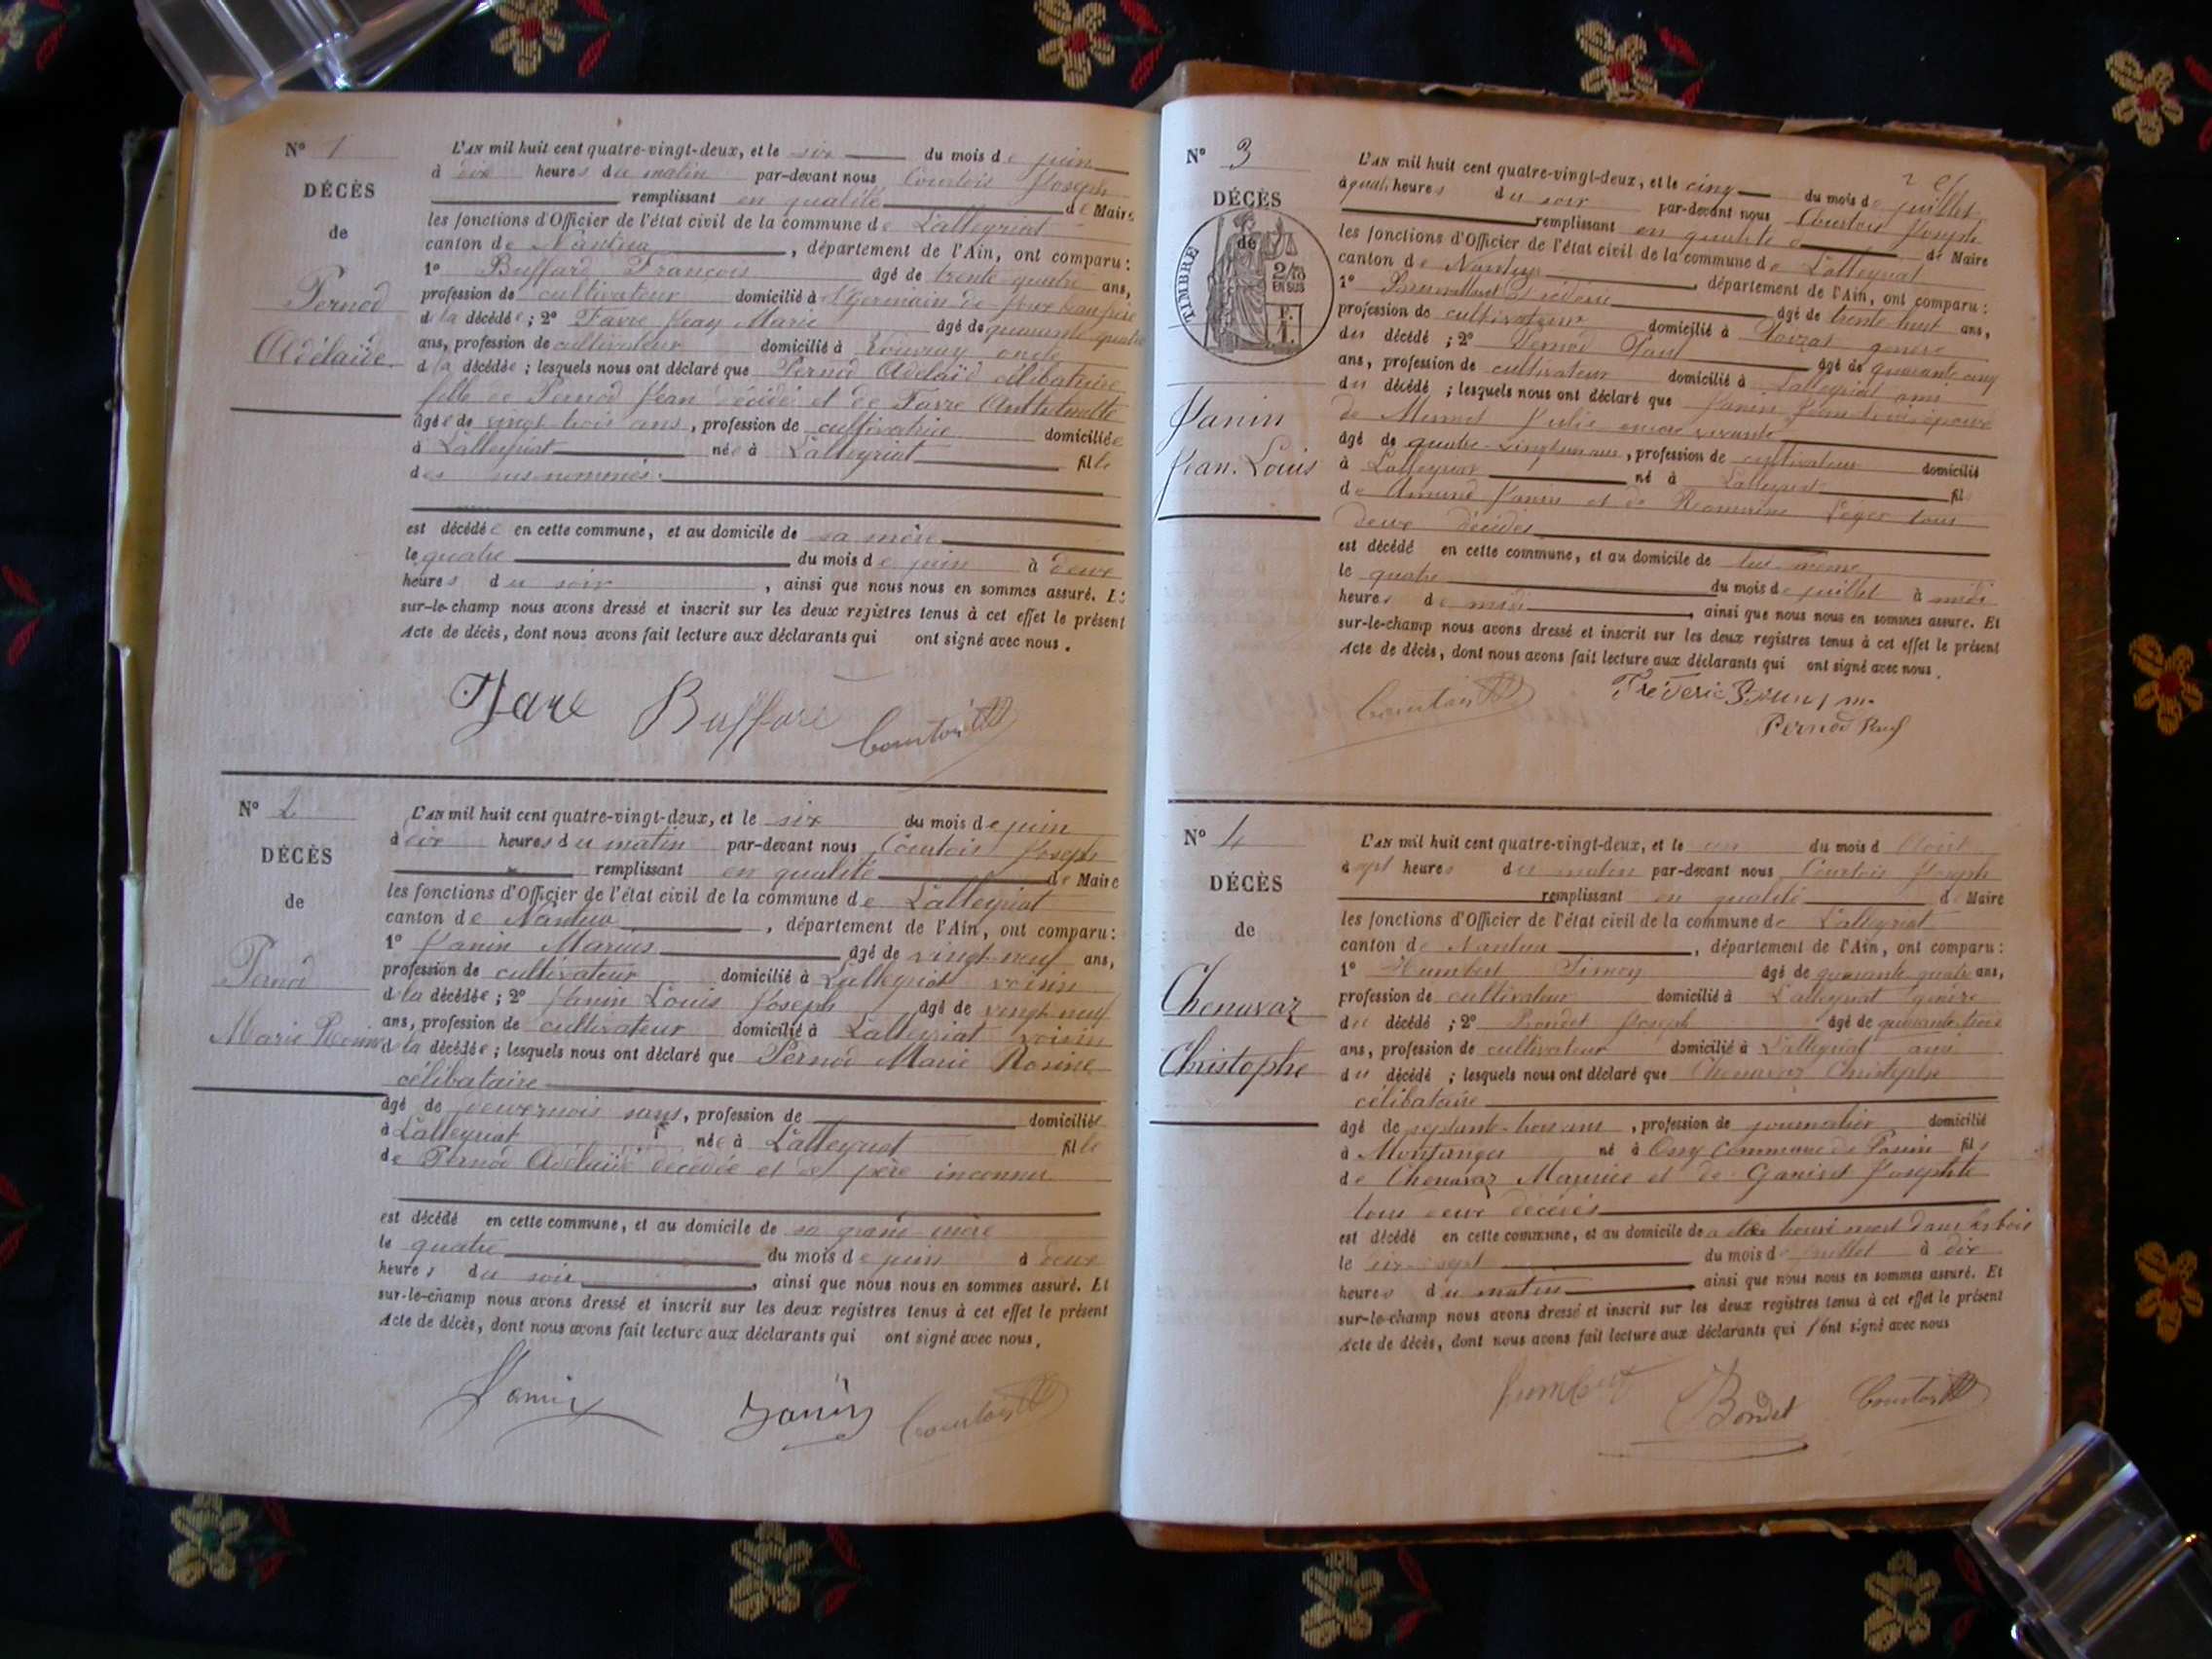 N° 1
DÉCÈS
de
Pernod
Adélaïde
L'AN mil huit cent quatre-vingt-deux, et le six du mois de juin
à six heures du matin par-devant nous Courtois Joseph
remplissant en qualité de Maire
les fonctions d'Officier de l'état civil de la commune de Lalleyriat
canton de Nantua, département de l'Ain, ont comparu :
1° Buffard François âgé de trente quatre ans,
profession de cultivateur domicilié à St Germain de Joux beau frère
de la décédée ; 2° Favre Jean Marie âgé de quarante quatre
ans, profession de cultivateur domicilié à oncle
de la décédée ; lesquels nous ont déclaré que Pernod Adélaïd célibataire
fille de Pernod Jean décédé et de Favre
âgée de vingt trois ans, profession de cultivatrice domiciliée
à Lalleyriat née à Lalleyriat fille
des sus nommés.
est décédée en cette commune, et au domicile de sa mère
le quatre du mois de juin à deux
heures du soir, ainsi que nous nous en sommes assuré. Et
sur-le-champ nous avons dressé et inscrit sur les deux registres tenus à cet effet le présent
Acte de décès, dont nous avons fait lecture aux déclarants qui ont signé avec nous.
Buffard Courtois
N° 2
DÉCÈS
de
Pernod
Marie Rosine
L'AN mil huit cent quatre-vingt-deux, et le six du mois de juin
à six heures du matin par-devant nous Courtois Joseph
remplissant en qualité de Maire
les fonctions d'Officier de l'état civil de la commune de Lalleyriat
canton de Nantua, département de l'Ain, ont comparu :
1° Janin Marius âgé de vingt-neuf ans,
profession de cultivateur domicilié à Lalleyriat voisin
de la décédée ; 2° Janin Louis Joseph âgé de vingt neuf
ans, profession de cultivateur domicilié à Lalleyriat voisin
de la décédée ; lesquels nous ont déclaré que Pernod Marie Rosine
célibataire
âgé de, profession de domiciliée
à Lalleyriat née à Lalleyriat fille
de Pernod Adélaïde décédée et de père inconnu
est décédé en cette commune, et au domicile de sa grand mère
le quatre du mois de juin à deux
heures du soir, ainsi que nous nous en sommes assuré. Et
sur-le-champ nous avons dressé et inscrit sur les deux registres tenus à cet effet le présent
Acte de décès, dont nous avons fait lecture aux déclarants qui ont signé avec nous.
Janin Janin Courtois
N° 3
DÉCÈS
de
TIMBRE
2/10
EN SUS
F.
1.
Janin
Jean-Louis
L'AN mil huit cent quatre-vingt-deux, et le cinq du mois de juillet
à quatre heures du soir par-devant nous Courtois Joseph
remplissant en qualité de Maire
les fonctions d'Officier de l'état civil de la commune de Lalleyriat
canton de Nantua, département de l'Ain, ont comparu :
1° Frédéric âgé de trente huit ans,
profession de cultivateur domicilié à gendre
du décédé ; 2° Pernod Paul âgé de quarante cinq
ans, profession de cultivateur domicilié à Lalleyriat ami
du décédé ; lesquels nous ont déclaré que Janin Jean Louis époux
de Mermet Julie encore vivante
âgé de, profession de cultivateur domicilié
à Lalleyriat né à Lalleyriat fil
de Janin et de Romaine Léger tous
deux décédés
est décédé en cette commune, et au domicile de lui-même
le quatre du mois de juillet à midi
heures de midi, ainsi que nous nous en sommes assuré. Et
sur-le-champ nous avons dressé et inscrit sur les deux registres tenus à cet effet le présent
Acte de décès, dont nous avons fait lecture aux déclarants qui ont signé avec nous.
Courtois Frédéric
Pernod Paul
N° 4
DÉCÈS
de
Chenavaz
Christophe
L'AN mil huit cent quatre-vingt-deux, et le un du mois d'Août
à sept heures du matin par-devant nous Courtois Joseph
remplissant en qualité de Maire
les fonctions d'Officier de l'état civil de la commune de Lalleyriat
canton de Nantua, département de l'Ain, ont comparu :
1° Humbert Simon âgé de quarante quatre ans,
profession de cultivateur domicilié à Lalleyriat
du décédé ; 2° Bondet Joseph âgé de quarante trois
ans, profession de cultivateur domicilié à Lalleyriat ami
du décédé ; lesquels nous ont déclaré que Chenavaz Christophe
célibataire
âgé de septante-trois ans, profession de journalier domicilié
à Montanges né à Commune de fils
de Chenavaz Maurice et de Josephte
tous deux décédés
est décédé en cette commune, et au domicile de a été trouvé mort dans les bois
le du mois de juillet à dix
heures du matin ainsi que nous nous en sommes assuré. Et
sur-le-champ nous avons dressé et inscrit sur les deux registres tenus à cet effet le présent
Acte de décès, dont nous avons fait lecture aux déclarants qui ont signé avec nous
Humbert Bondet Courtois